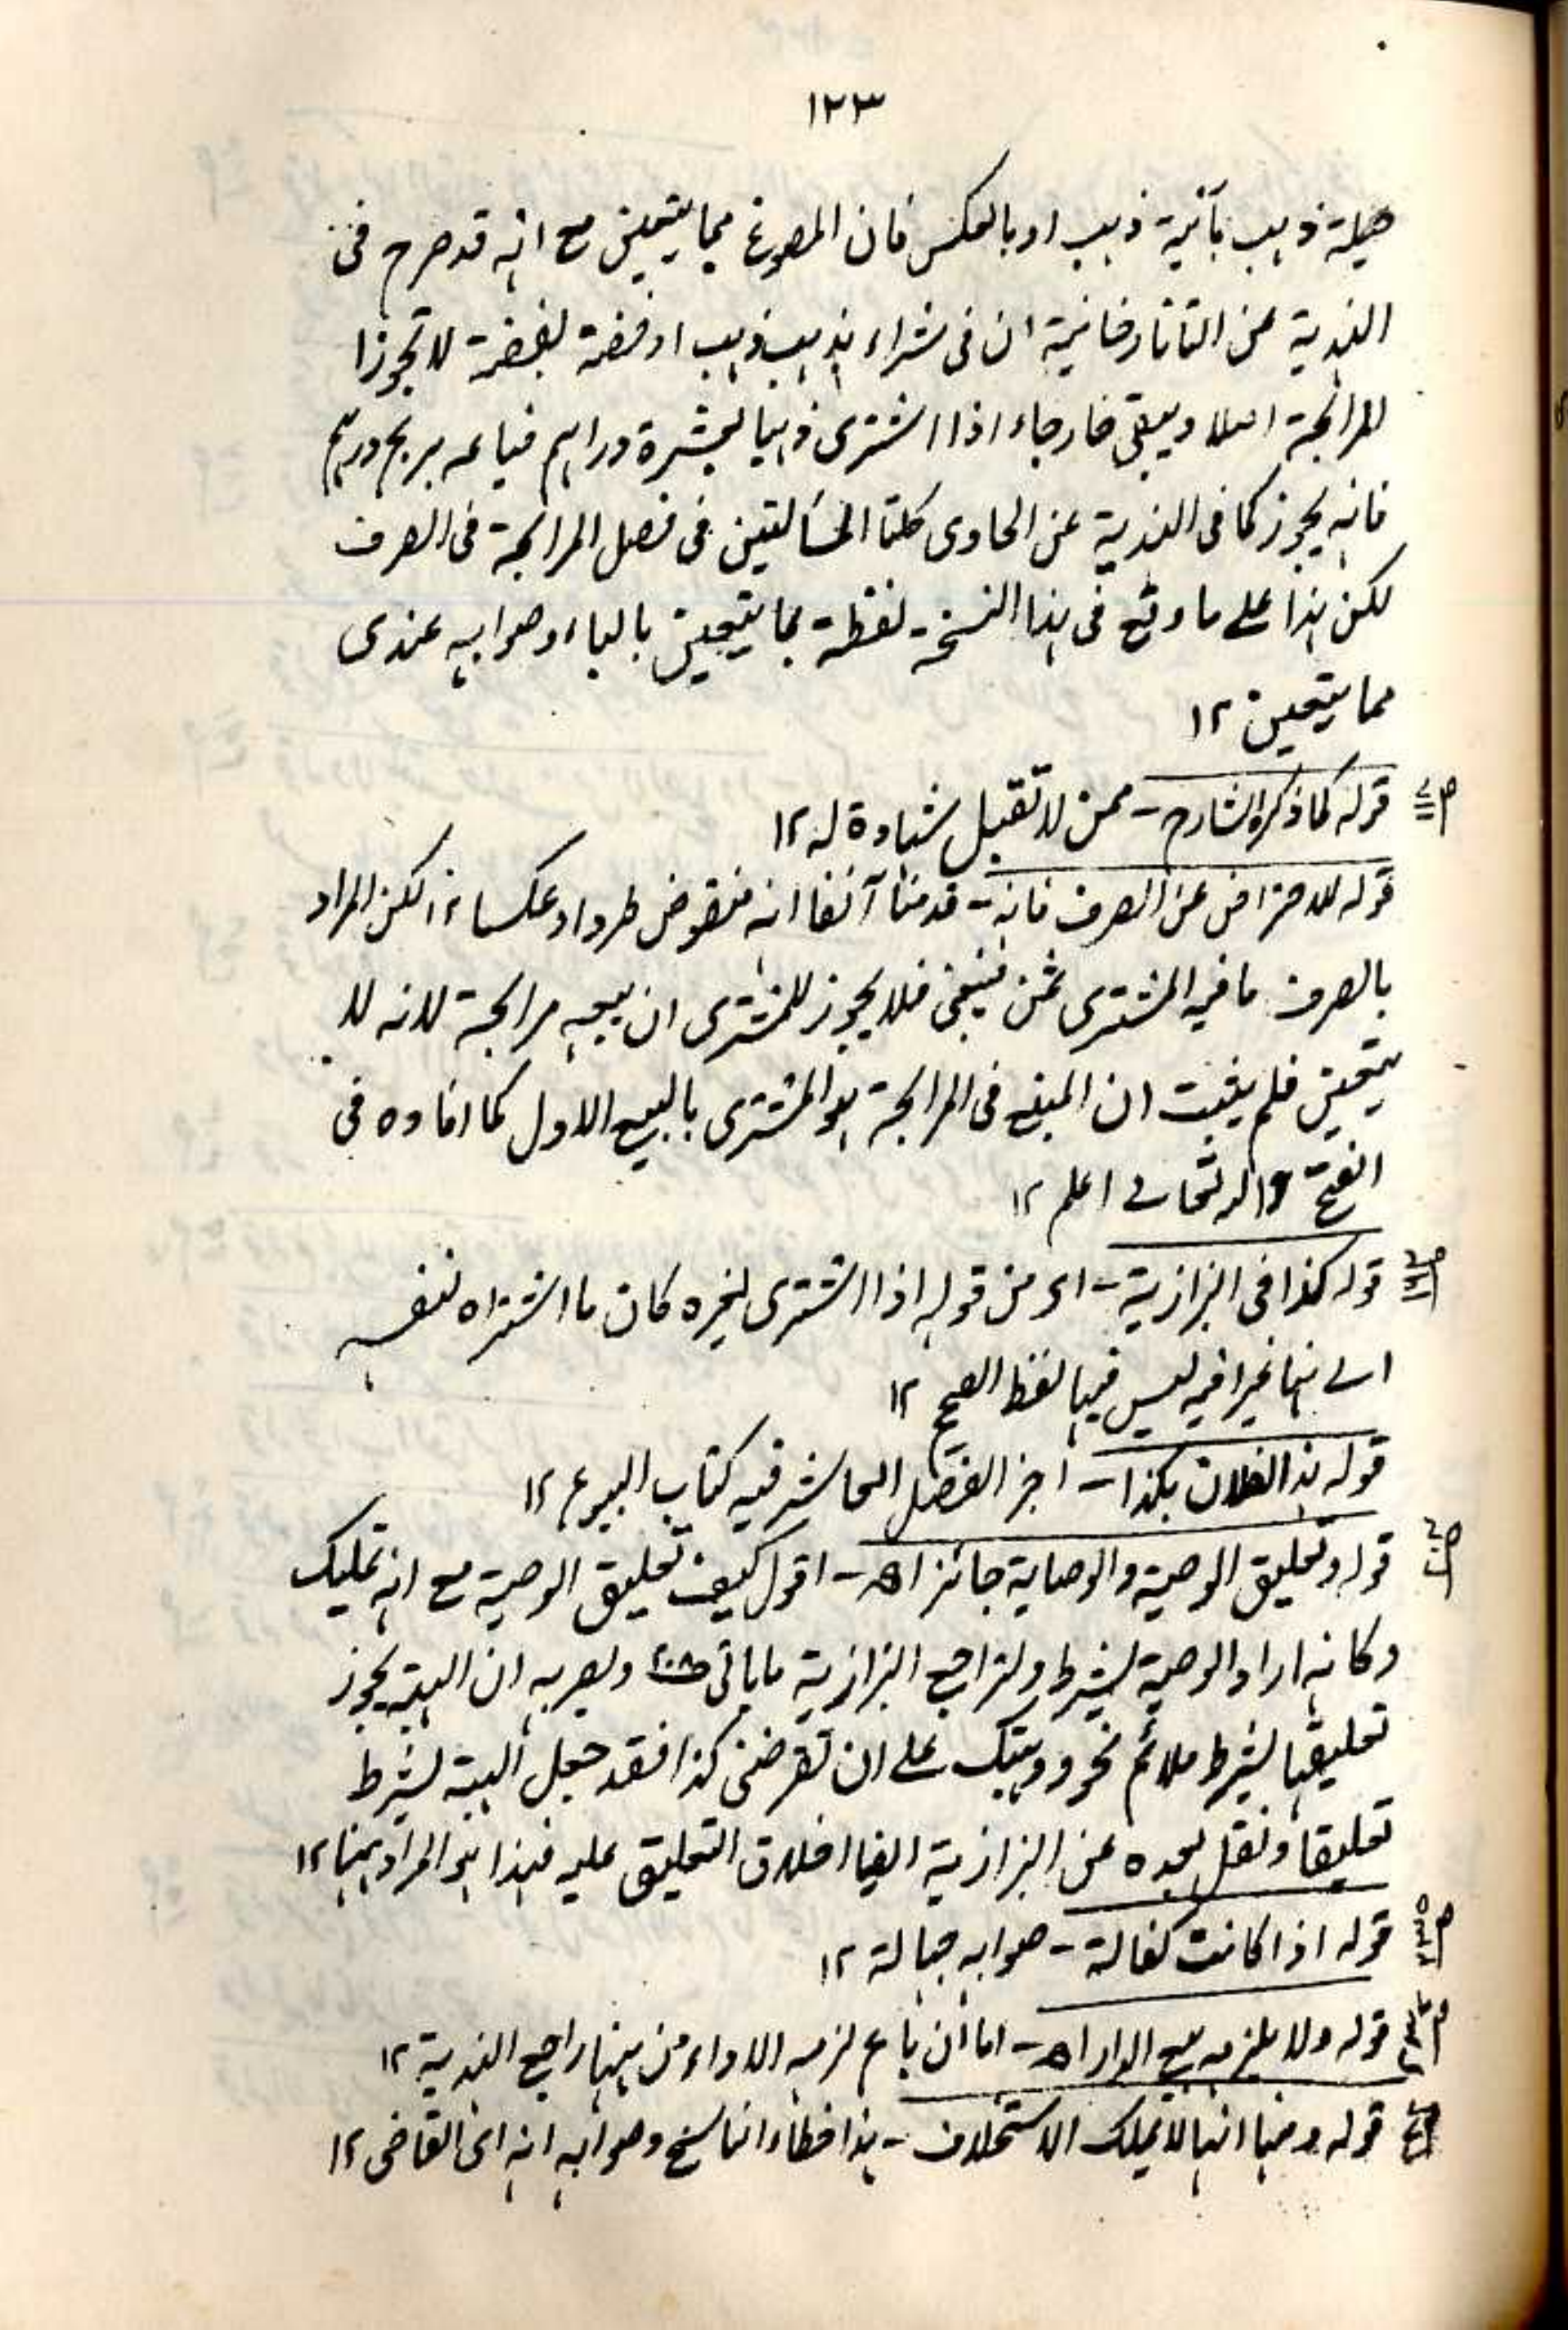 ١٢٣
حلية ذهب بآنية ذهب او بالعكس فان المصوغ مما يتعين مع انه قد صرح فى
الهندية عن التاتارخانية ان فى شراء ذهب بذهب او فضة بفضة لا تجوز
المرابحة اصلا ويبقى خارجاء اذا اشترى ذهبا بعشرة دراهم فباعه بربح درهم
فانه يجوز كما فى الهندية عن الحاوى كلتا المسألتين فى فصل المرابحة فى الصرف
لكن هذا على ما وقع فى هذا النسخة لفظة بما يتعين بالباء وصوابه عندى
مما يتعين ١٢
قوله كما ذكره الشارح - ممن لا تقبل شهادة له ١٢
قوله للاحتراض عن الصرف فانه - قدمنا آنفا انه منقوض طردا وعكسا ١٢ لكن المراد
بالصرف ما فيه المشترى ثمن فينبغى فلا يجوز للمشترى ان يبيعه مرابحة لانه لا
يتعين فلم يثبت ان المبيع فى المرابحة هو المشترى بالبيع الاول كما افاده فى
الفتح والله تعالى اعلم ١٢
قوله كذا فى البزازية - اى من قوله اذا اشترى لغيره كان ما اشتراه لنفسه
الى هنا غير انه ليس فيها لفظ الصحيح ١٢
قوله هذا لفلان بكذا - اخر الفصل العاشر فيه كتاب البيوع ١٢
قوله وتعليق الوصية والوصاية جائز اه - اقول كيف تعليق الوصية مع انه تمليك
وكانه اراد الوصية بشرط ولتراجع البزازية ما ياتى ص٢٠٨ ويصربه ان الهبة يجوز
تعليقها بشرط ملائم نحو وهبتك على ان تقرضنى كذا فقد جعل الهبة بشرط
تعليقا ونقل بعده عن البزازية ايضا اطلاق التعليق عليه فهذا هو المراد ههنا ١٢
قوله اذا كانت كفالة - صوابه جهالة ١٢
قوله ولا يلزمه بيع الدار اه - اما ان باع لزمه الاداء من ثمنها راجع الهندية ١٢
قوله ومنها انها لا تملك الاستخلاف - هذا خطاء الناسخ وصوابه انه اى القاضى ١٢